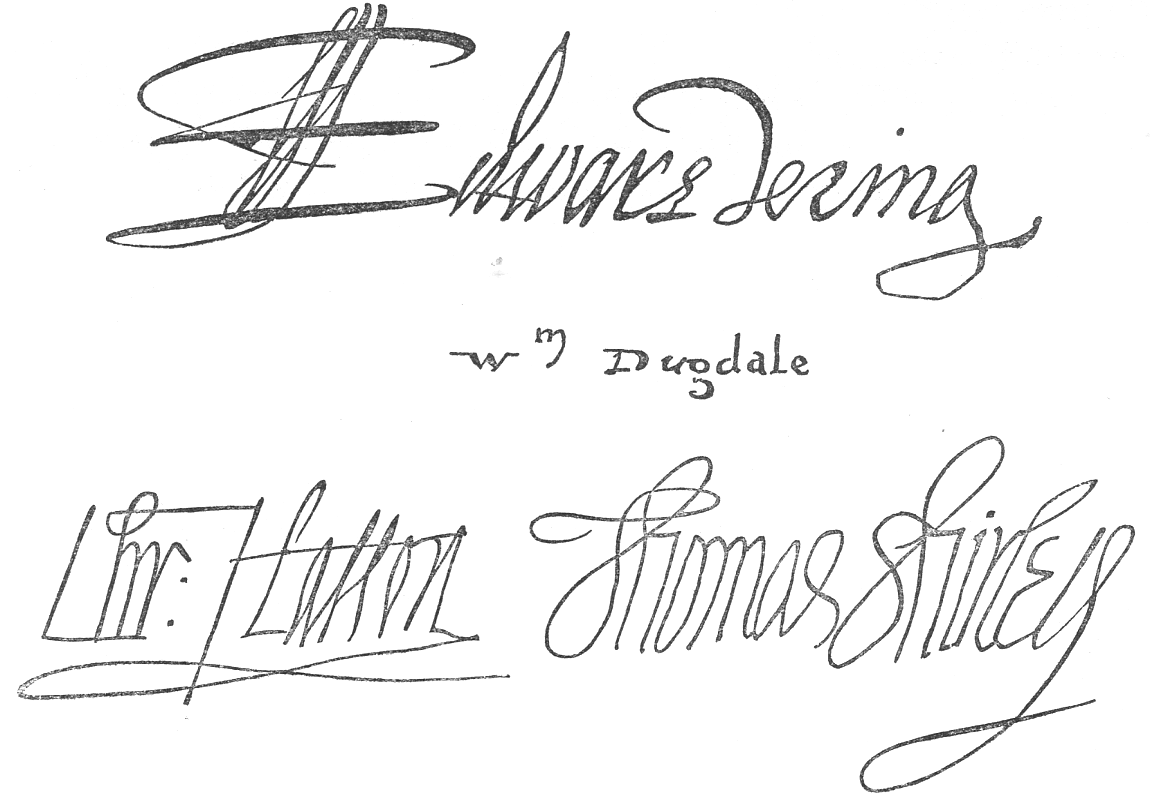 Edward Dering
Wm Dugdale
Chr: Hatton
Thomas Shirley